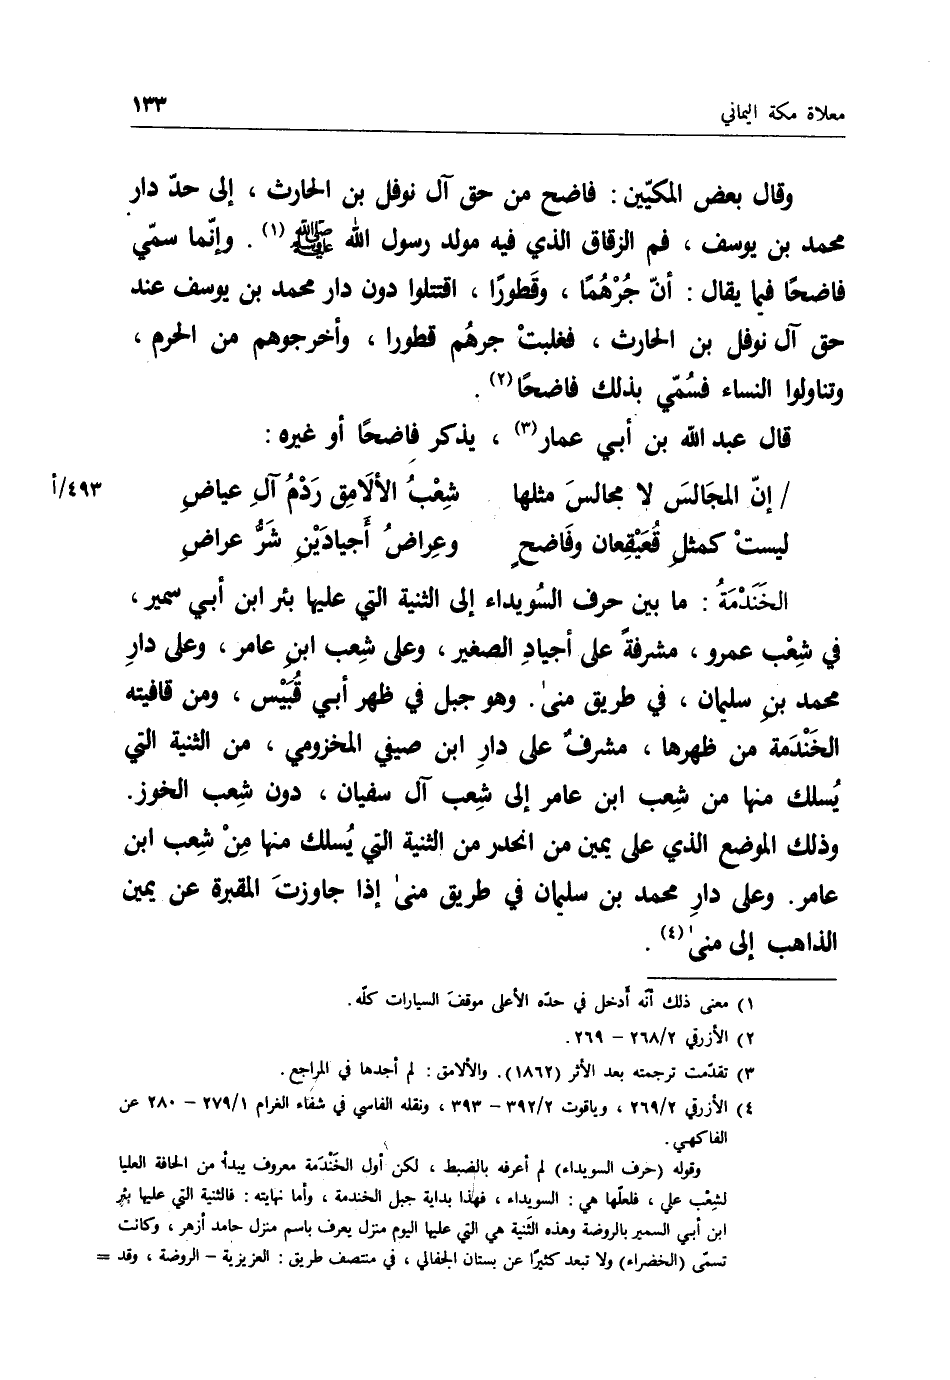 معلاة مكة اليماني ١٣٣
وقال بعض المكيّين : فاضح من حق آل نوفل بن الحارث ، إلى حدّ دار
محمد بن يوسف ، فم الزقاق الذي فيه مولد رسول الله ﷺ (١) . وإنّما سمّي
فاضحًا فيما يقال : أنّ جُرْهُمًا ، وقَطورًا ، اقتتلوا دون دار محمد بن يوسف عند
حق آل نوفل بن الحارث ، فغلبتْ جرهُم قطورا ، وأخرجوهم من الحرم ،
وتناولوا النساء فسُمّي بذلك فاضحًا(٢) .
قال عبد الله بن أبي عمار(٣) ، يذكر فاضحًا أو غيره :
/ إنّ المجَالسَ لا مجالسَ مثلها شعْبُ الألَامِق رَدْمُ آلِ عياضِ ٤٩٣/أ
ليستْ كمثلِ قُعَيْقِعان وفَاضحٍ وعِراضُ أَجيادَيْنِ شَرُّ عراضِ
الخَنَدْمَةُ : ما بين حرف السُويداء إلى الثنية التي عليها بئر ابن أبي سمير ،
في شِعْب عمرو ، مشرفةً على أجيادِ الصغير ، وعلى شِعب ابنِ عامر ، وعلى دارِ
محمد بنِ سليمان ، في طريق منىٰ . وهو جبل في ظهر أبي قُبَيْس ، ومن قافيته
الخَنْدَمة من ظهرها ، مشرفٌ على دارِ ابن صيفي المخزومي ، من الثنية التي
يُسلك منها من شِعب ابن عامر إلى شِعب آل سفيان ، دون شِعب الخوز .
وذلك الموضع الذي على يمين من انحدر من الثنية التي يُسلك منها مِنْ شعب ابن
عامر . وعلى دارِ محمد بن سليمان في طريق منىٰ إذا جاوزتَ المقبرة عن يمين
الذاهب إلى منىٰ(٤) .
١) معنى ذلك أنّه أدخل في حدّه الأعلى موقفَ السيارات كلّه .
٢) الأزرقي ٢٦٨/٢ – ٢٦٩ .
٣) تقدّمت ترجمته بعد الأثر (١٨٦٢) . والألامق : لم أجدها في المراجع .
٤) الأزرقي ٢٦٩/٢ ، وياقوت ٣٩٢/٢ – ٣٩٣ ، ونقله الفاسي في شفاء الغرام ٢٧٩/١ – ٢٨٠ عن
الفاكهي .
وقوله (حرف السويداء) لم أعرفه بالضبط ، لكن أول الخَنْدَمة معروف يبدأ من الحافة العليا
لشعْب علي ، فلعلّها هي : السويداء ، فهذا بداية جبل الخندمة ، وأما نهايته : فالثنية التي عليها بئر
ابن أبي السمير بالروضة وهذه الثنية هي التي عليها اليوم منزل يعرف باسم منزل حامد أزهر ، وكانت
تسمّى (الخضراء) ولا تبعد كثيرًا عن بستان الجفالي ، في منتصف طريق : العزيزية – الروضة ، وقد =